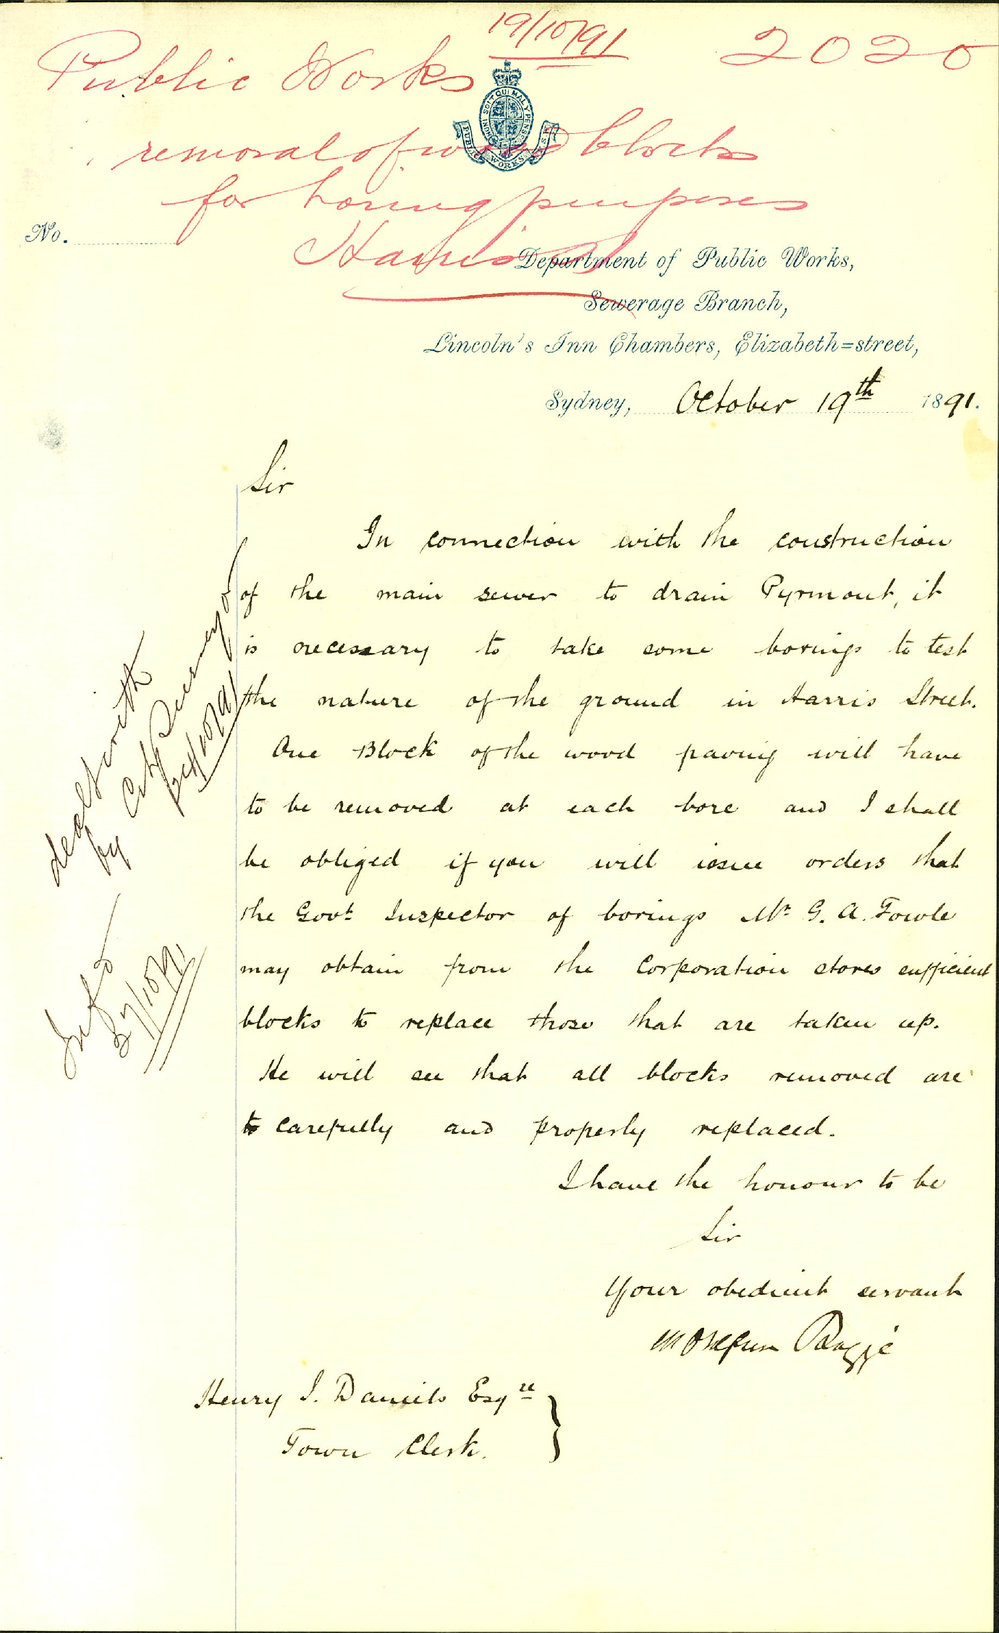 19/10/91
2020
Public Works
removal of wood blocks
for boring purposes
Harris St
SOIT QUI MAL Y PENSE
PUBLIC WORKS N.S.W.
No.
Department of Public Works,
Sewerage Branch,
Lincoln's Inn Chambers, Elizabeth=street,
Sydney, October 19th 1891.
Sir
In connection with the construction
of the main sewer to drain Pyrmont, it
is necessary to take some borings to test
the nature of the ground in Harris Street.
One Block of the wood paving will have
to be removed at each bore and I shall
be obliged if you will issue orders that
the Govt. Inspector of borings Mr G. A. Fowle
may obtain from the Corporation stores sufficient
blocks to replace those that are taken up.
He will see that all blocks removed are
carefully and properly replaced.
I have the honour to be
Sir
Your obedient servant
Henry J. Daniels Esqre
Town Clerk.
dealt with
by City Surveyor
24/10/91
27/10/91